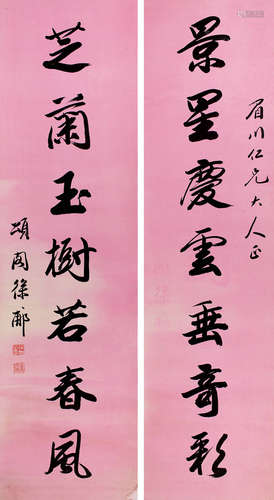 眉川仁兄大人正
景星慶雲垂奇彩
芝蘭玉樹若春風
頌閣徐郙